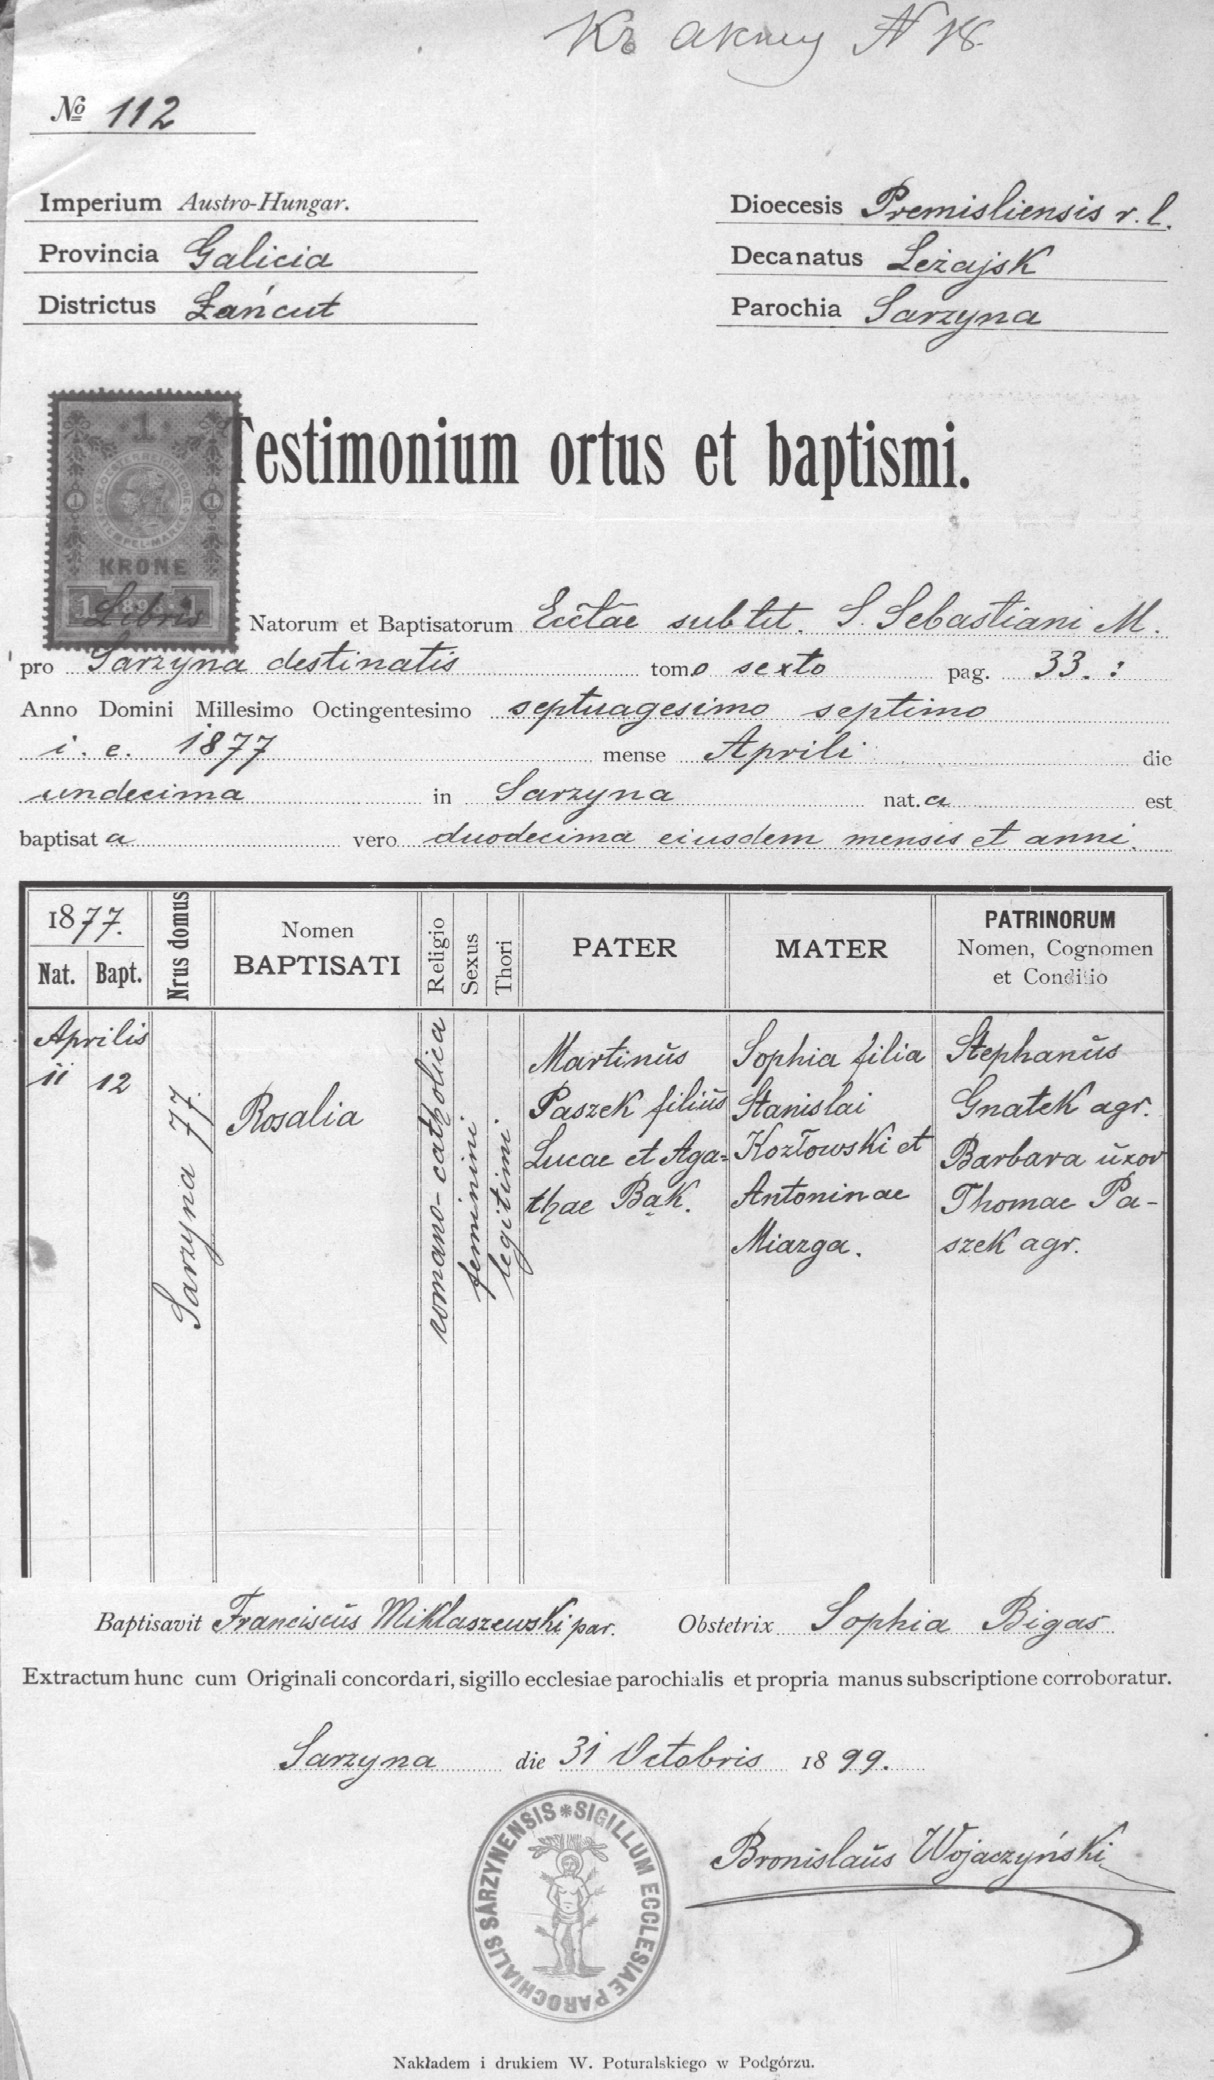 Къ акту N 18.
№ 112
Imperium Austro-Hungar.
Provincia Galicia
Districtus Łańcut
Dioecesis Premisliensis r. l.
Decanatus Leżajsk
Parochia Sarzyna
1
KRONE
1 1898 1
Testimonium ortus et baptismi.
Libris Natorum et Baptisatorum Ecctae sub tit. S. Sebastiani M.
pro Sarzyna destinatis tomo sexto pag. 33. :
Anno Domini Millesimo Octingentesimo septuagesimo septimo
i. e. 1877 mense Aprili die
undecima in Sarzyna nat.a est
baptisat a vero duodecima eiusdem mensis et anni.
1877.
Nat. Bapt.
Nrus domus
Nomen
BAPTISATI
Religio
Sexus
Thori
PATER
MATER
PATRINORUM
Nomen, Cognomen
et Conditio
Aprilis
11 12
Sarzyna 77.
Rosalia
romano-catholica
feminini
legitimi.
Martinus
Paszek filius
Lucae et Aga=
thae Bąk.
Sophia filia
Stanislai
Kozłowski et
Antoninae
Miazga.
Stephanus
Gnatek agr.
Barbara uxor
Thomae Pa-
szek agr.
Baptisavit Franciscus Miklaszewski par. Obstetrix Sophia Bigas
Extractum hunc cum Originali concordari, sigillo ecclesiae parochialis et propria manus subscriptione corroboratur.
Sarzyna die 31 Octobris 1899.
SIGILLUM ECCLESIAE PAROCHIALIS SARZYNENSIS
Bronislaus Wojaczyński
Nakładem i drukiem W. Poturalskiego w Podgórzu.